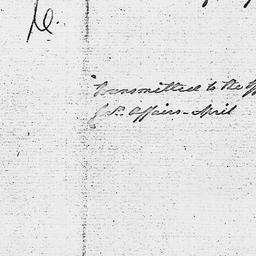 &c.
transmitted to the
Ind. Affairs - April